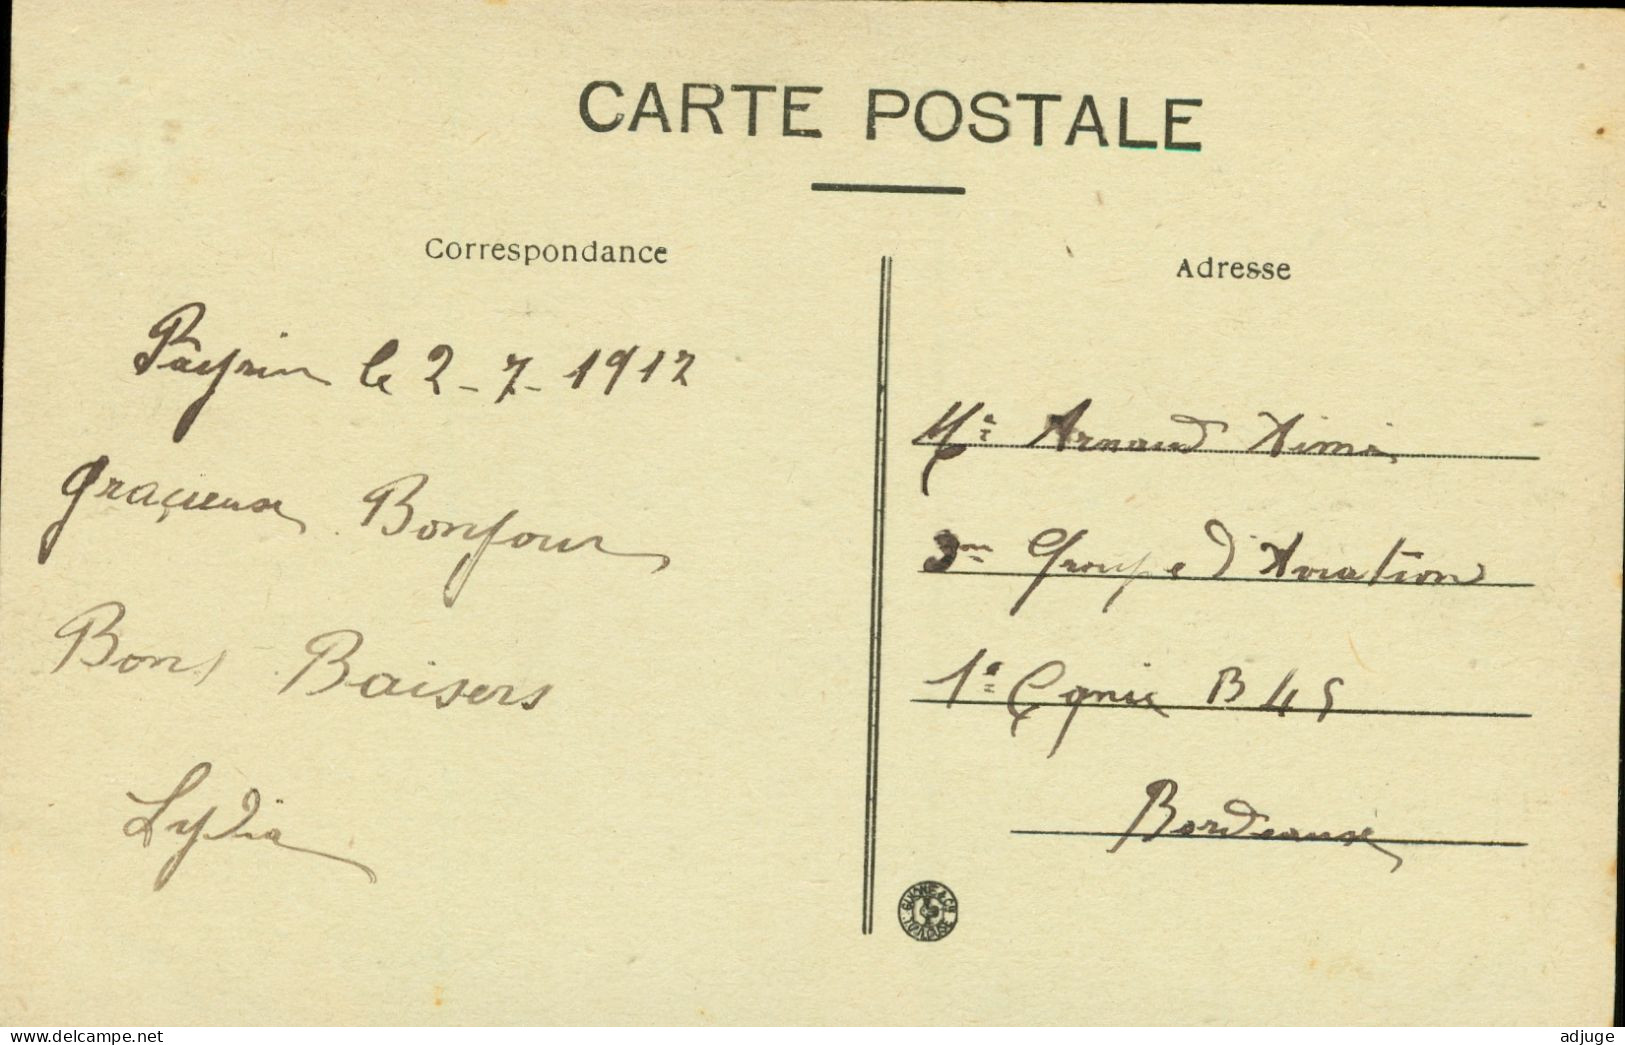 CARTE POSTALE
Correspondance
Payrin le 2-7-1912
Graçieuse Bonjour
Bons Baisers
Lydia
Adresse
Arnaud Aimé
3me Groupe d'Aviation
1e Cgnie B 45
Bordeaux
TOULOUSE
delcampe.net
adjuge